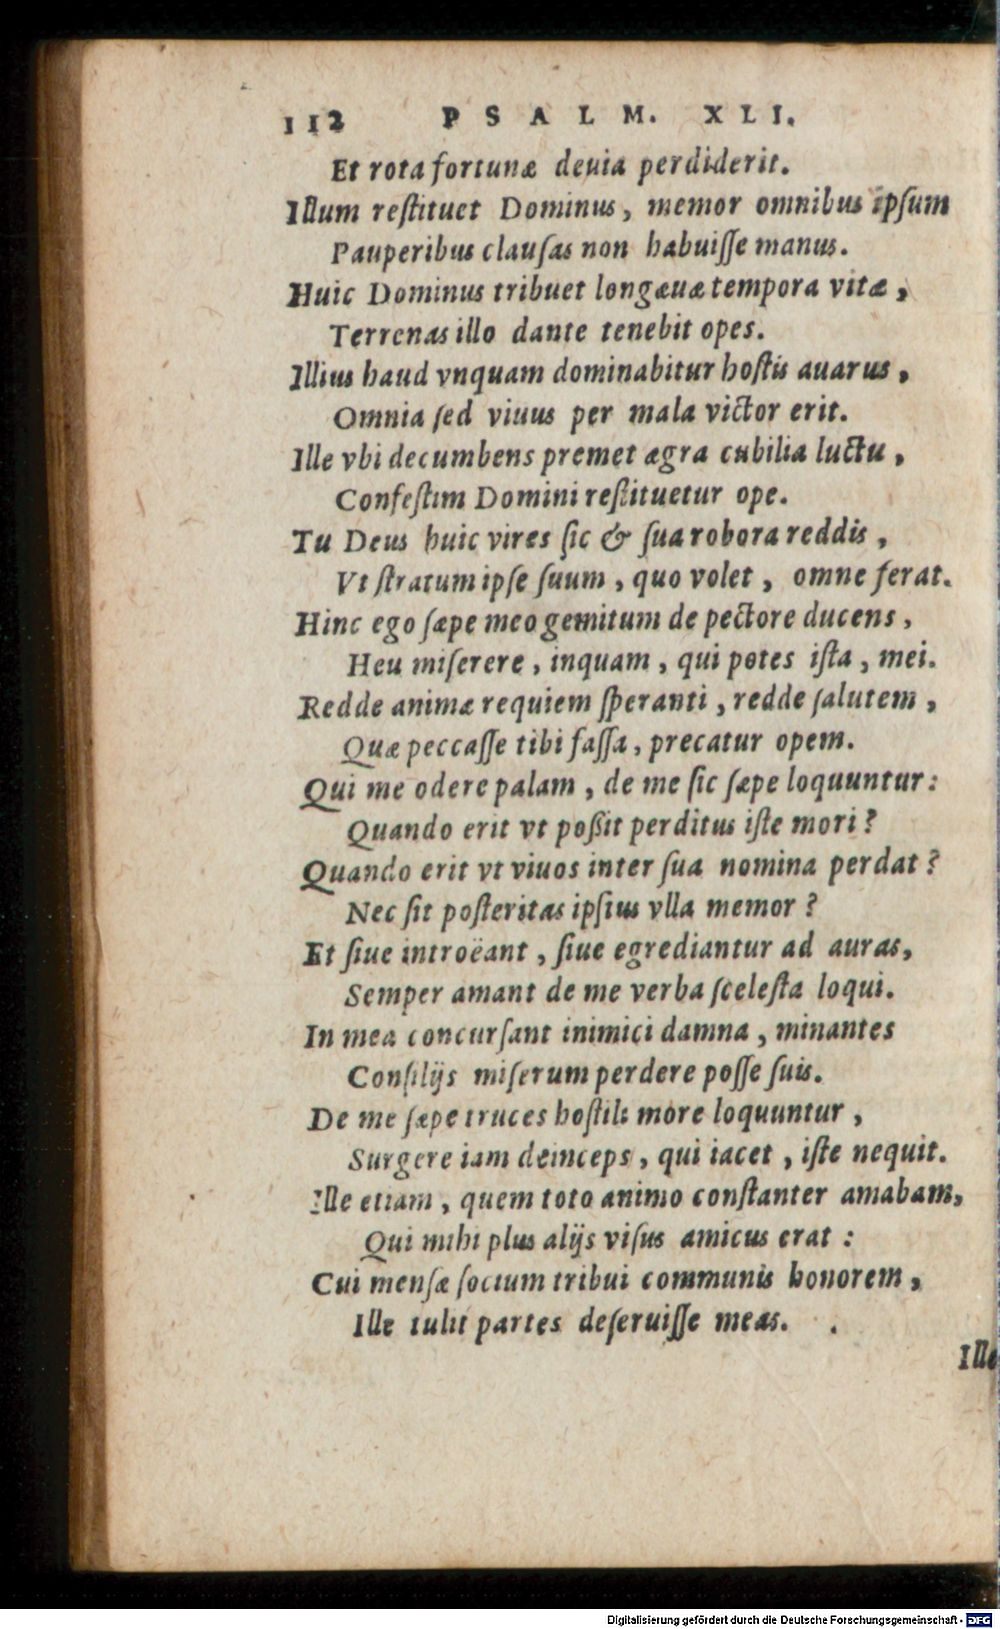 112 PSALM. XLI.
Et rota fortunæ deuia perdiderit.
Illum reſtituet Dominus, memor omnibus ipſum
Pauperibus clauſas non habuiſſe manus.
Huic Dominus tribuet longæuæ tempora vitæ,
Terrenas illo dante tenebit opes.
Illius haud vnquam dominabitur hoſtis auarus,
Omnia ſed viuus per mala victor erit.
Ille vbi decumbens premet ægra cubilia luctu,
Confeſtim Domini reſtituetur ope.
Tu Deus huic vires ſic & ſua robora reddis,
Vt ſtratum ipſe ſuum, quo volet, omne ferat.
Hinc ego ſæpe meo gemitum de pectore ducens,
Heu miſerere, inquam, qui potes iſta, mei.
Redde animæ requiem ſperanti, redde ſalutem,
Quæ peccaſſe tibi faſſa, precatur opem.
Qui me odere palam, de me ſic ſæpe loquuntur:
Quando erit vt poßit perditus iſte mori?
Quando erit vt viuos inter ſua nomina perdat?
Nec ſit poſteritas ipſius vlla memor?
Et ſiue introëant, ſiue egrediantur ad auras,
Semper amant de me verba ſceleſta loqui.
In mea concurſant inimici damna, minantes
Conſilijs miſerum perdere poſſe ſuis.
De me ſæpe truces hoſtili more loquuntur,
Surgere iam deinceps, qui iacet, iſte nequit.
Ille etiam, quem toto animo conſtanter amabam,
Qui mihi plus alijs viſus amicus erat:
Cui menſæ ſocium tribui communis honorem,
Ille tulit partes deſeruiſſe meas.
Ille
Digitalisierung gefördert durch die Deutsche Forschungsgemeinschaft - DFG